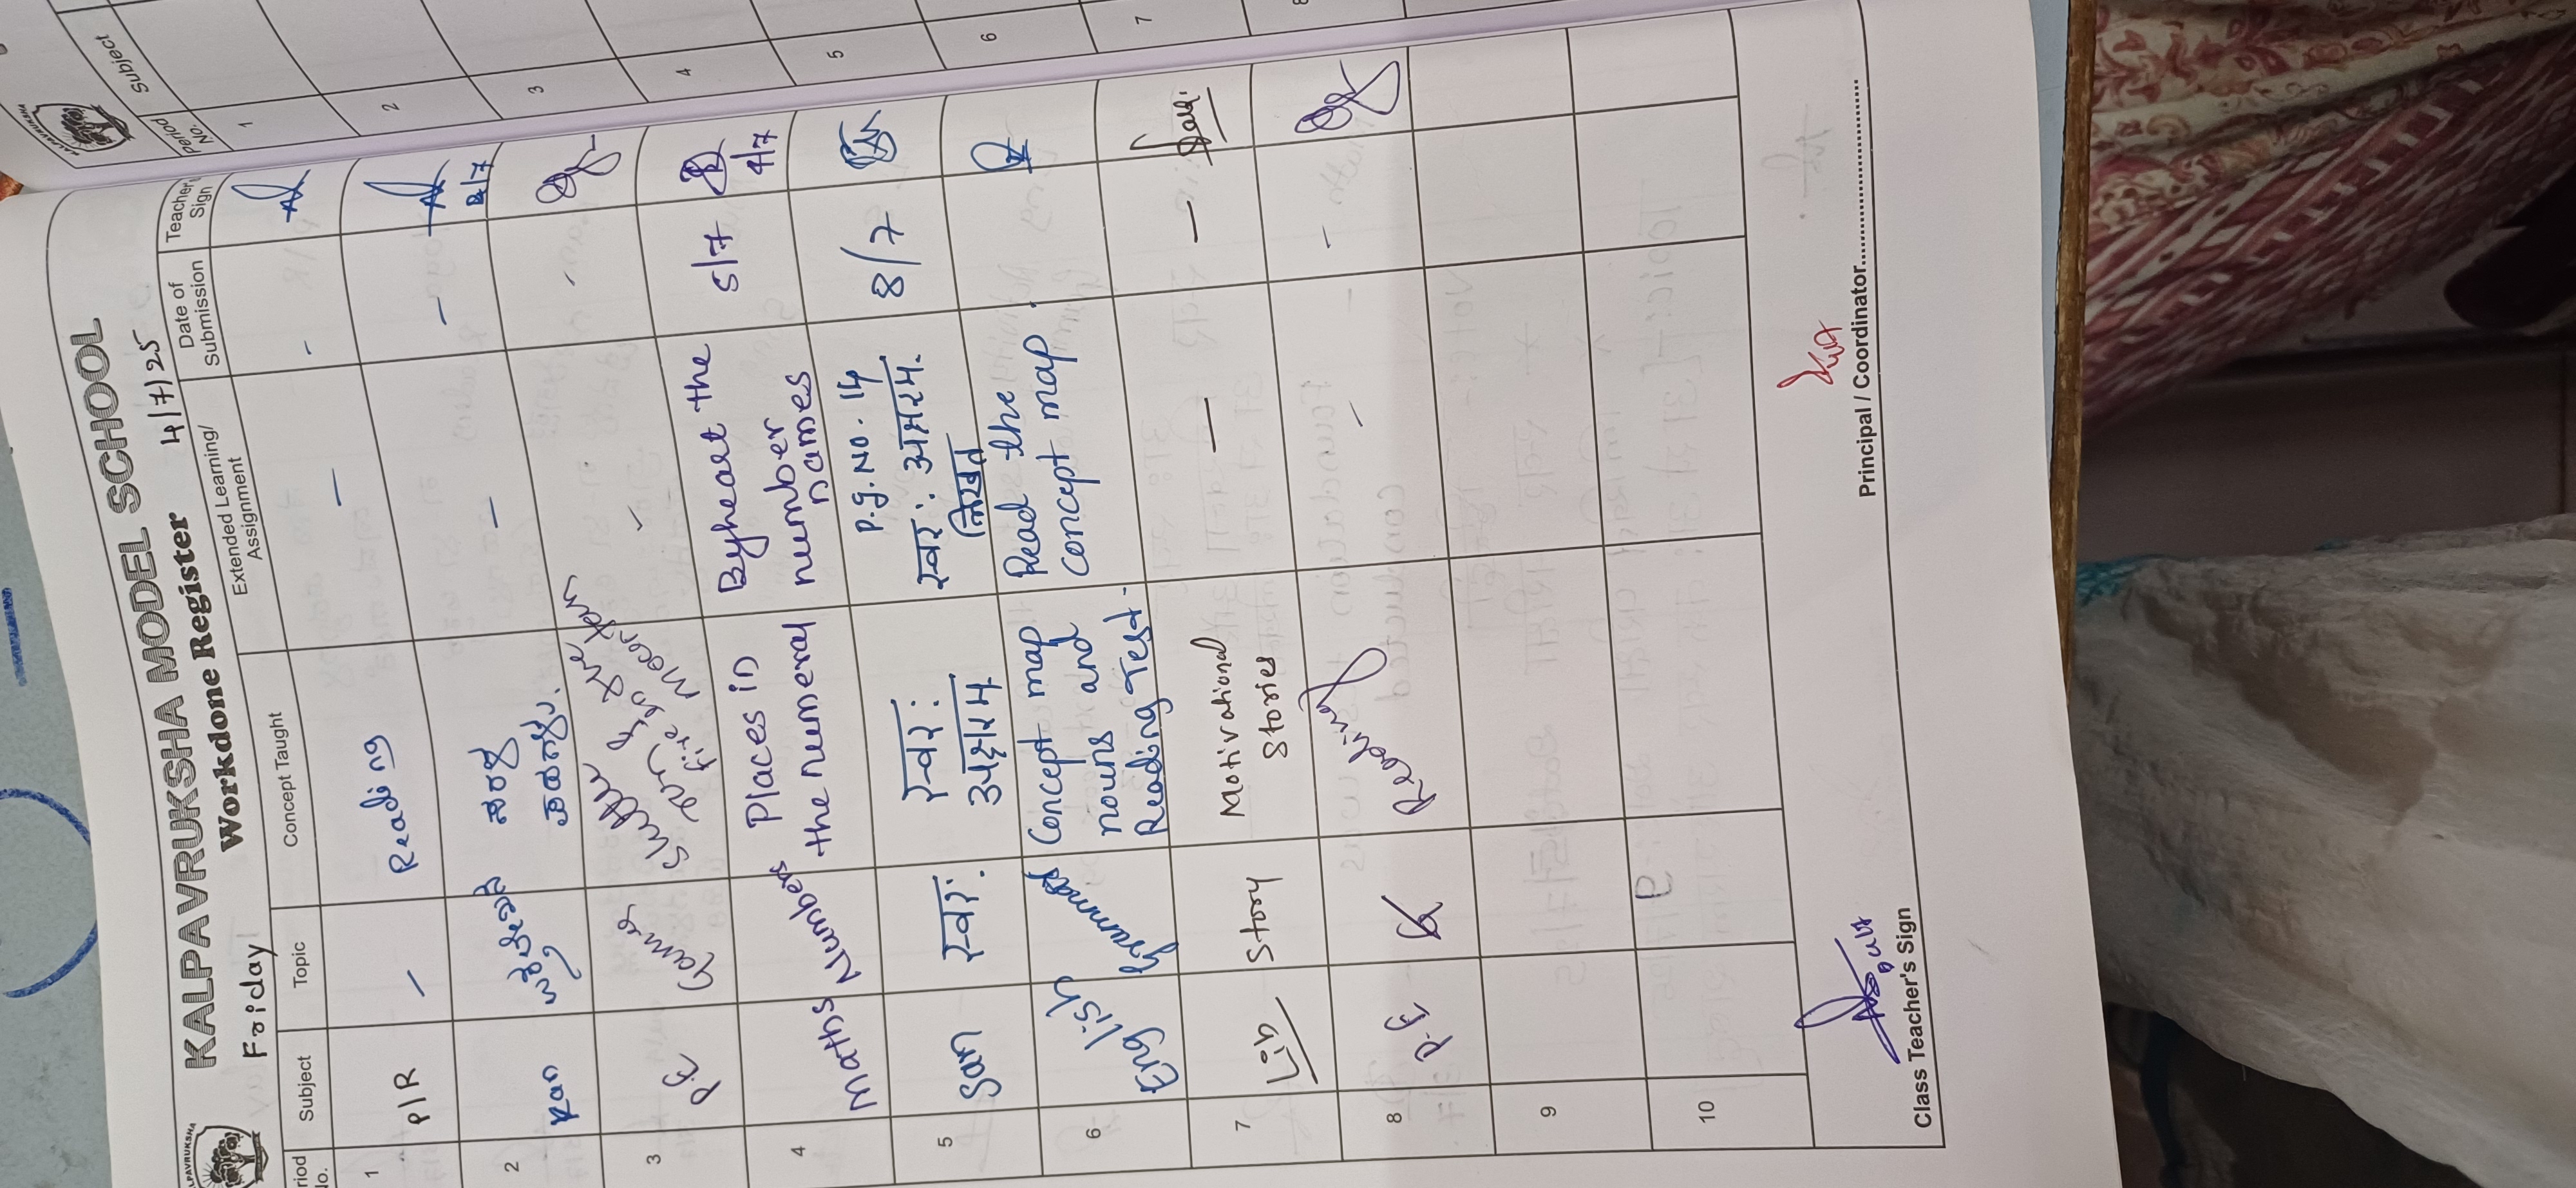 KALPAVRUKSHA
KALPAVRUKSHA MODEL SCHOOL
Workdone Register
Friday 4/7/25
Period No. Subject Topic Concept Taught Extended Learning/ Assignment Date of Submission Teacher Sign
1 P/R - Reading - -
2 Kan ಸರಳ - -
4/7
3 P.E Game - -
4 Maths Numbers Places in the numeral Byheart the number names 5/7
4/7
5 San स्वरः स्वरः P.g.No. 14 स्वरः 8/7
6 English Grammar Concept map nouns and Reading Test. Read the concept map.
7 Lib Story Motivational Stories - -
8 P.E Reading - -
9
10
Class Teacher's Sign
Principal / Coordinator
KALPAVRUKSHA
Period No. Subject
1
2
3
4
5
6
7
8